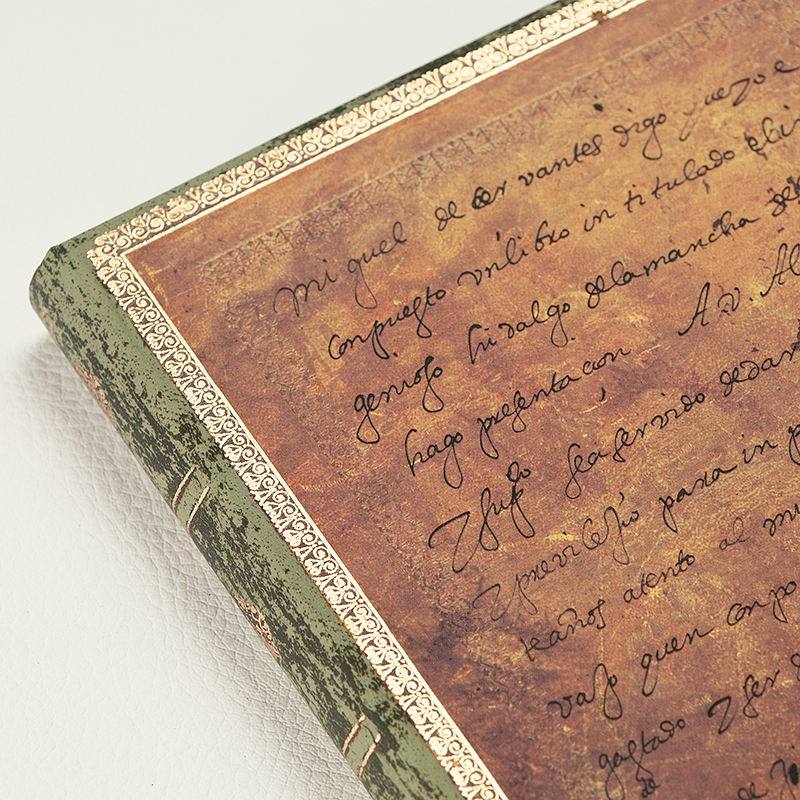 Miguel de Cervantes digo quezo e
conpuesto vn libro intitulado el in
genioso hidalgo dela mancha del
hago presentacion A.V. Al
sea servido de dar
previlejio para in p
te años atento al mu
vajo que en conpo
gastado
de